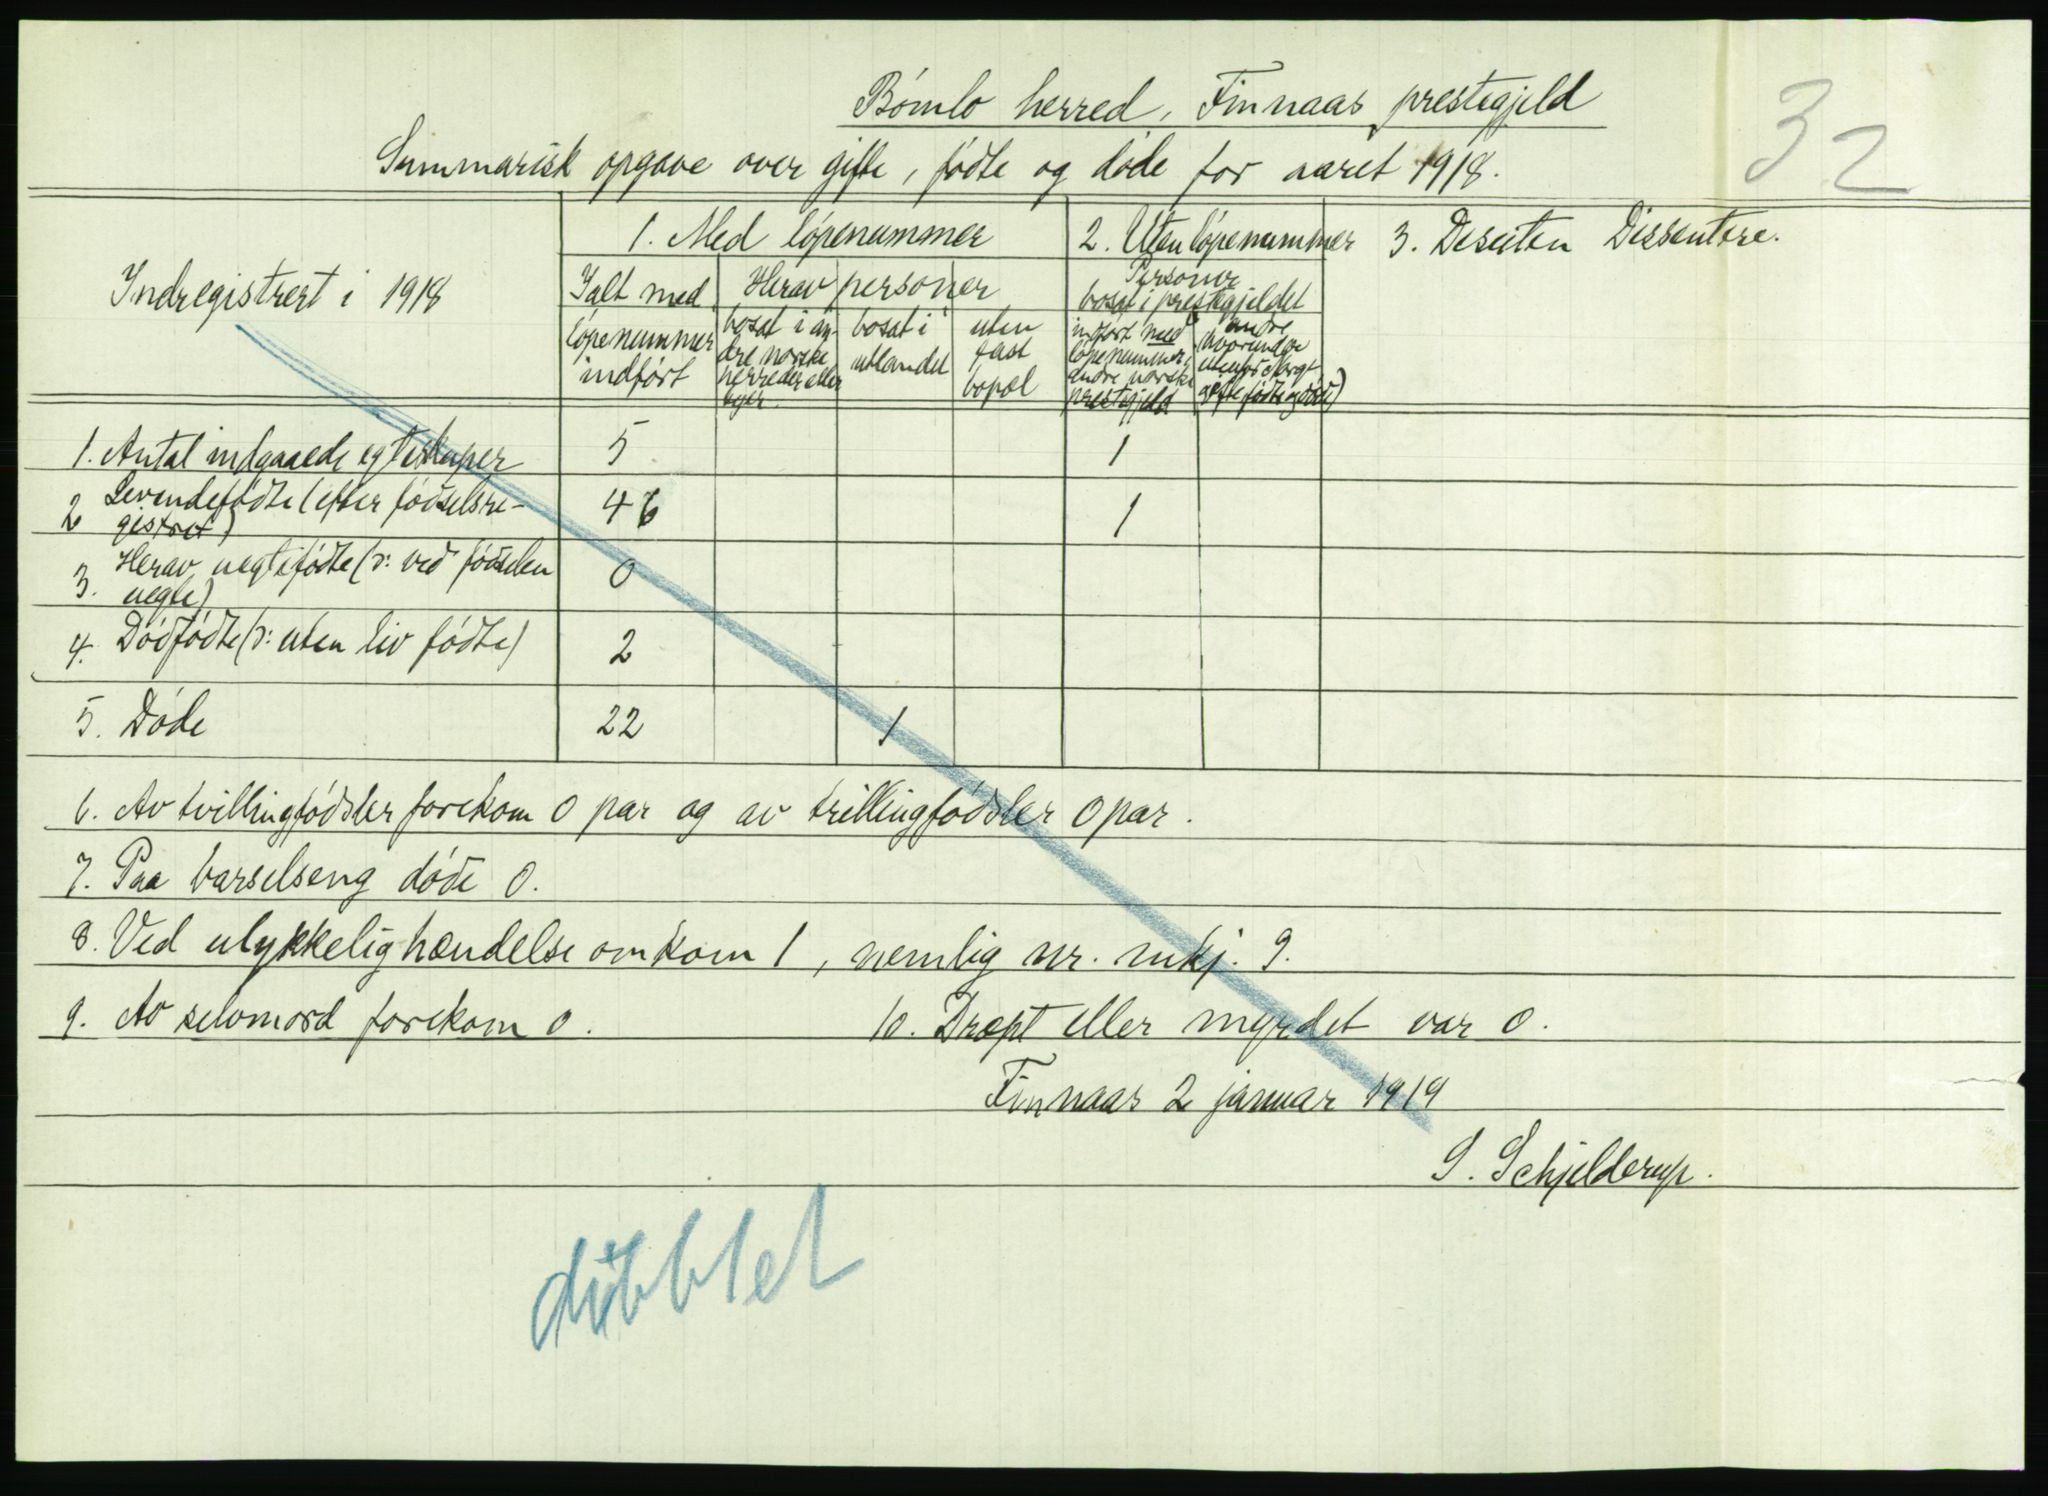 Bómlo herred, Finnaas prestegjeld
32
Summarisk opgave over gifte, fódte og dóde for aaret 1918.
Indregistrert i 1918
1. Med lópenummer
2. Uten lópenummer
3. Desuten Dissentere.
Ialt med lópenummer indfórt
Herav personer
bosat i andre norske herreder eller byer.
bosat i utlandet
uten fast bopæl
Personer bosat i prestegjeldet
indfórt med lópenummer i andre norske prestegjeld
andre (herunder utenfor Norge gifte fódte og dóde)
1. Antal indgaaede egteskaper 5 1
2 Levendefódte (efter fódselsre-
gistret) 46 1
3. Herav uegtefódte (ɔ: ved fódselen
uegte) 0
4. Dódfódte (ɔ: uten liv fódte) 2
5. Dóde 22 1
6. Av tvillingfódsler forekom 0 par og av trillingfódsler 0 par.
7. Paa barselseng dóde 0.
8. Ved ulykkelig hændelse omkom 1, nemlig nr. mkj. 9.
9. Av selvmord forekom 0. 10. Dræpt eller myrdet var 0.
Finnaas 2 januar 1919
S. Schjelderup.
dubblet